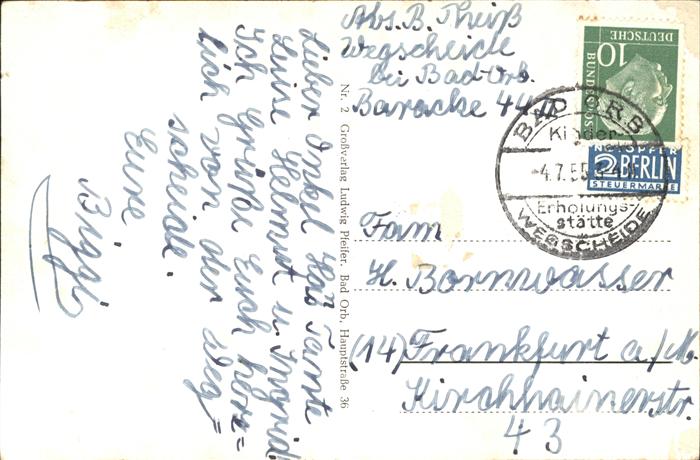 Abs. B. Theiß
Wegscheide
bei Bad-Orb.
Baracke 44
Lieber Onkel Hans Tante
Luise Helmut u. Ingrid
Ich Grüße Euch herz=
lich von der Weg=
scheide.
Eure
Biggi
Nr. 2 Großverlag Ludwig Pfeifer, Bad Orb, Hauptstraße 36
10
DEUTSCHE
BUNDESPOST
NOTOPFER
2 BERLIN
STEUERMARKE
BAD ORB
Kinder
-4.7.55
Erholungs-
stätte
WEGSCHEIDE
Fam
H. Bornwasser
(14) Frankfurt a/M.
Kirchhainerstr.
43